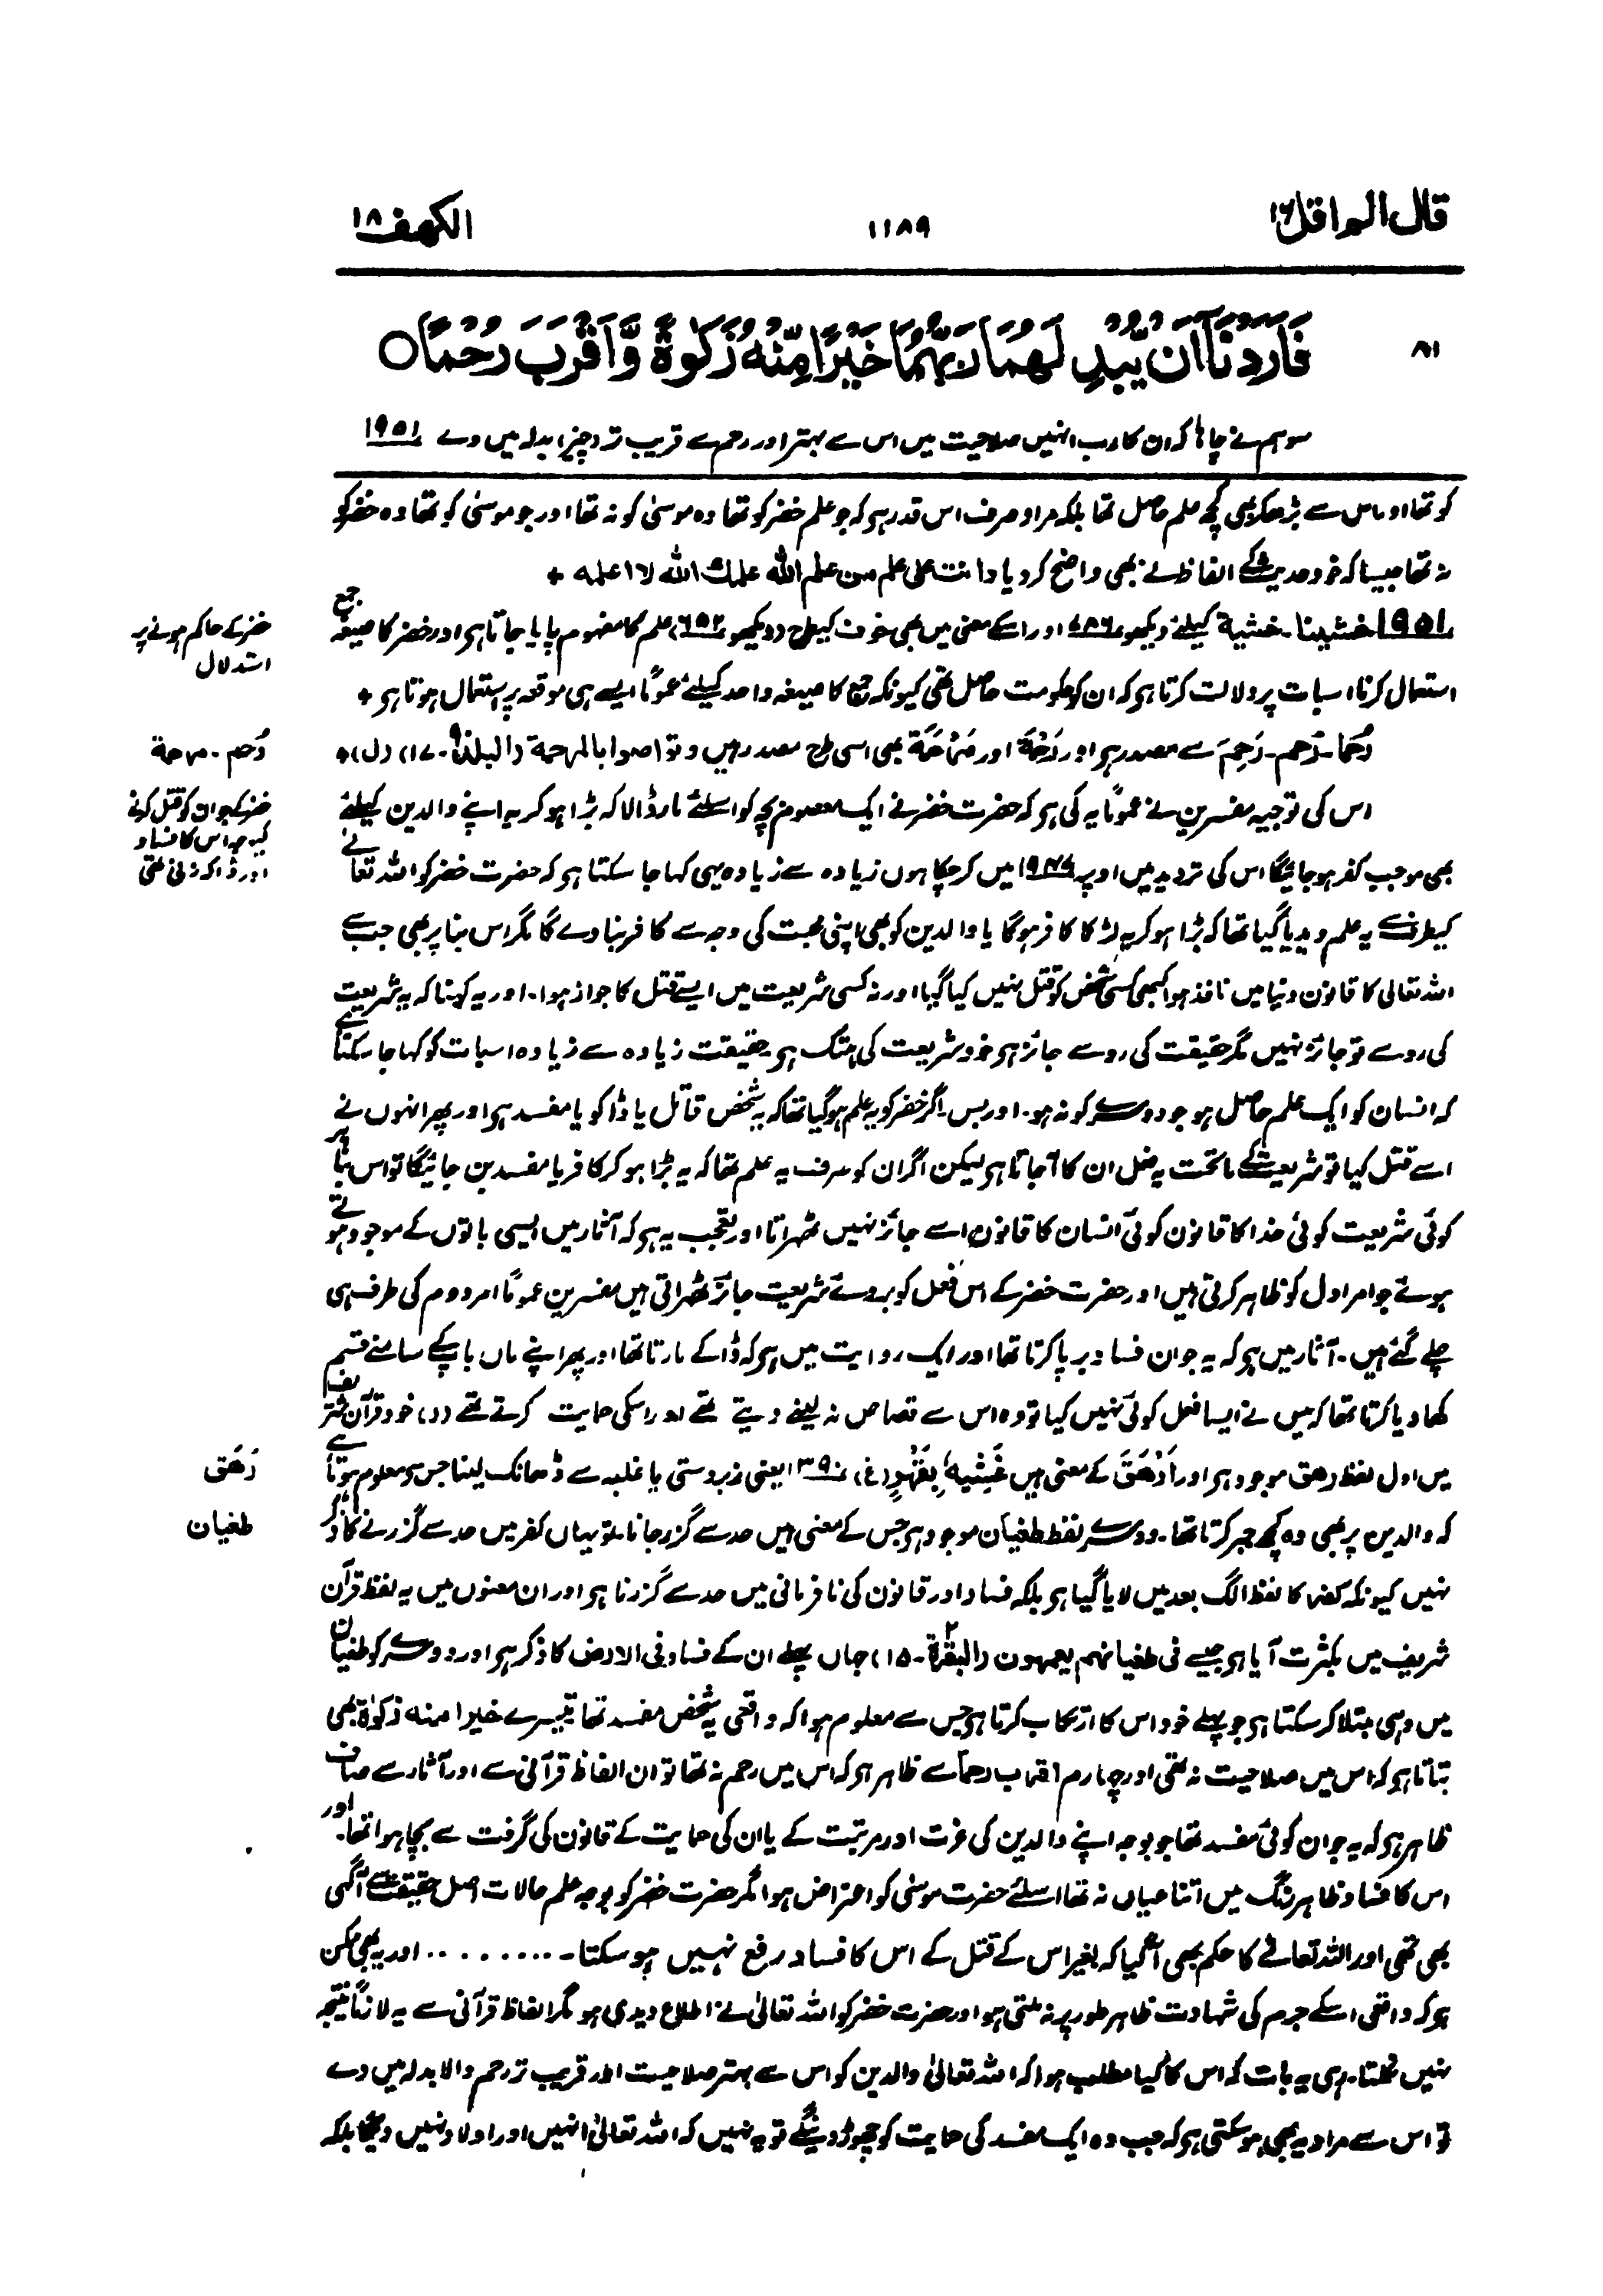 قال الم اقل ۱۶
۱۱۸۹
الکھف ۱۸
۸۱
فَاَرَدْنَآ اَنْ یُّبْدِلَھُمَا رَبُّھُمَا خَیْرًا مِّنْہُ زَکٰوۃً وَّ اَقْرَبَ رُحْمًا ○
سو ہم نے چاہا کہ ان کا رب انہیں صلاحیت میں اس سے بہتر اور رحم سے قریب تر (چیز) بدلہ میں دے ۱۹۵۱
کو تھا اور اس سے بڑھکر بھی کچھ علم حاصل تھا بلکہ مراد صرف اس قدر ہے کہ جو علم خضر کو تھا وہ موسیٰ کو نہ تھا اور جو موسیٰ کو تھا وہ خضر کو
نہ تھا جیسا کہ خود حدیث کے الفاظ نے بھی واضح کر دیا وانت علی علم من علم اللہ علمک اللہ لا اعلمہ +
۱۹۵۱ خشینا۔ خشیۃ کیلئے دیکھو ۷۸۶ اور اسکے معنی میں بھی خوف کیطرح (دیکھو ۶۵۲) علم کا مفہوم پایا جاتا ہے اور خضر کا صیغہ جمع
استعمال کرنا اسبات پر دلالت کرتا ہے کہ ان کو حکومت حاصل تھی کیونکہ جمع کا صیغہ واحد کیلئے عموماً ایسے ہی موقعہ پر استعمال ہوتا ہے +
خضر کے حاکم ہونے پر
استدلال
رُحما۔ رُحم۔ رَحِمَ سے مصدر ہے اور رَحْمَۃ اور مَرْحَمَۃ بھی اسی طرح مصدر ہیں وتواصوا بالمرحمۃ (البلد ۹۰۔ ۱۷) (ل) +
رُحم۔ مرحمۃ
اس کی توجیہ مفسرین نے عموماً یہ کی ہے کہ حضرت خضر نے ایک معصوم بچہ کو اسلئے مار ڈالا کہ بڑا ہو کر یہ اپنے والدین کیلئے
بھی موجب کفر ہو جائیگا اس کی تردید میں اوپر ۱۹۴۷ میں کر چکا ہوں زیادہ سے زیادہ یہی کہا جا سکتا ہے کہ حضرت خضر کو اللہ تعالٰے
خضر کے جوان کو قتل کرنے
کی وجہ اس کا فساد
اور ڈاکہ زنی تھی
کیطرف سے یہ علم دیدیا گیا تھا کہ بڑا ہو کر یہ لڑکا کافر ہوگا یا والدین کو بھی اپنی محبت کی وجہ سے کافر بنا دے گا مگر اس بنا پر بھی جب سے
اللہ تعالیٰ کا قانون دنیا میں نافذ ہوا کبھی کسی شخص کو قتل نہیں کیا گیا اور نہ کسی شریعت میں ایسے قتل کا جواز ہوا۔ اور یہ کہنا کہ یہ شریعت
کی رو سے تو جائز نہیں مگر حقیقت کی رو سے جائز ہے خود شریعت کی ہتک ہے حقیقت زیادہ سے زیادہ اسبات کو کہا جا سکتا ہے
کہ انسان کو ایک علم حاصل ہو جو دوسرے کو نہ ہو۔ اور بس۔ اگر خضر کو یہ علم ہو گیا تھا کہ یہ شخص قاتل یا ڈاکو یا مفسد ہے اور پھر انہوں نے
اسے قتل کیا تو شریعت کے ماتحت یہ فعل ان کا آجاتا ہے لیکن اگر ان کو صرف یہ علم تھا کہ یہ بڑا ہو کر کافر یا مفسد بن جائیگا تو اس بنا پر
کوئی شریعت کوئی خدا کا قانون کوئی انسان کا قانون اسے جائز نہیں ٹھہراتا اور تعجب یہ ہے کہ آثار میں ایسی باتوں کے موجود ہوتے
ہوئے جو امر اول کو ظاہر کرتی ہیں اور حضرت خضر کے اس فعل کو بروئے شریعت جائز ٹھہراتی ہیں مفسرین عموماً امر دوم کی طرف ہی
چلے گئے ہیں۔ آثار میں ہے کہ یہ جوان فساد برپا کرتا تھا اور ایک روایت میں ہے کہ ڈاکے مارتا تھا اور پھر اپنے ماں باپ کے سامنے قسم
کھا دیا کرتا تھا کہ میں نے ایسا فعل کوئی نہیں کیا تو وہ اس سے قصاص نہ لینے دیتے تھے اور اسکی حمایت کرتے تھے (د) خود قرآن شریف
میں اول لفظ رھق موجود ہے اور اَرْھَقَ کے معنی ہیں غَشِیَہٗ بِقَھْرٍ (غ) ۱۳۹۰ یعنی زبردستی یا غلبہ سے ڈھانک لینا جس سے معلوم ہوتا ہے
رَھَق
کہ والدین پر بھی وہ کچھ جبر کرتا تھا۔ دوسرے لفظ طغیان موجود ہے جس کے معنی ہیں حد سے گزر جانا۔ تو یہاں کفر میں حد سے گزرنے کا ذکر
طغیان
نہیں کیونکہ کفرا کا لفظ الگ بعد میں لایا گیا ہے بلکہ فساد اور قانون کی نافرمانی میں حد سے گزرنا ہے اور ان معنوں میں یہ لفظ قرآن
شریف میں بکثرت آیا ہے جیسے فی طغیانھم یعمھون (البقرۃ ۲۔ ۱۵) جہاں پہلے ان کے فساد فی الارض کا ذکر ہے اور دوسرے کو طغیان
میں وہی مبتلا کر سکتا ہے جو پہلے خود اس کا ارتکاب کرتا ہے جس سے معلوم ہوا کہ واقعی یہ شخص مفسد تھا تیسرے خیرا منہ زکوٰۃ بھی
بتاتا ہے کہ اس میں صلاحیت نہ تھی اور چہارم اقرب رحماً سے ظاہر ہے کہ اس میں رحم نہ تھا تو ان الفاظ قرآنی سے اور آثار سے صاف
ظاہر ہے کہ یہ جوان کوئی مفسد تھا جو بوجہ اپنے والدین کی عزت اور مرتبت کے یا ان کی حمایت کے قانون کی گرفت سے بچا ہوا تھا۔ اور
اس کا فساد ظاہر رنگ میں اتنا عیاں نہ تھا اسلئے حضرت موسیٰ کو اعتراض ہوا مگر حضرت خضر کو بوجہ علم حالات اصل حقیقت سے آگہی
بھی تھی اور اللہ تعالٰے کا حکم بھی آگیا کہ بغیر اس کے قتل کے اس کا فساد رفع نہیں ہو سکتا۔ ......... اور یہ بھی ممکن
ہے کہ واقعی اسکے جرم کی شہادت ظاہر طور پر نہ ملتی ہو اور حضرت خضر کو اللہ تعالیٰ نے اطلاع دیدی ہو مگر الفاظ قرآنی سے یہ لازماً نتیجہ
نہیں نکلتا۔ رہی یہ بات کہ اس کا کیا مطلب ہوا کہ اللہ تعالیٰ والدین کو اس سے بہتر صلاحیت اور قریب تر رحم والا بدلہ میں دے
تو اس سے مراد یہ بھی ہو سکتی ہے کہ جب وہ ایک مفسد کی حمایت کو چھوڑ دینگے تو یہ نہیں کہ اللہ تعالیٰ انہیں اور اولاد نہیں دیگا بلکہ